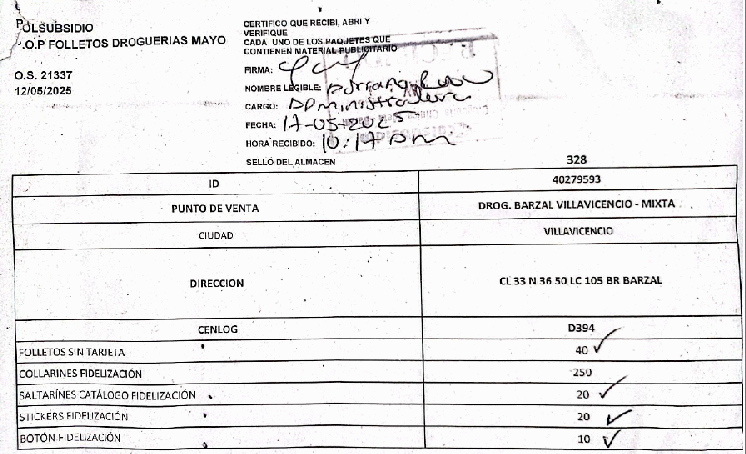 POLSUBSIDIO
.O.P FOLLETOS DROGUERIAS MAYO
O.S. 21337
12/05/2025
CERTIFICO QUE RECIBI, ABRI Y
VERIFIQUE
CADA UNO DE LOS PAQUETES QUE
CONTIENEN MATERIAL PUBLICITARIO
FIRMA:
NOMBRE LEGIBLE:
CARGO:
FECHA: 17-05-2025
HORA RECIBIDO: 10:17 am
SELLO DEL ALMACEN
328
ID 40279593
PUNTO DE VENTA DROG. BARZAL VILLAVICENCIO - MIXTA
CIUDAD VILLAVICENCIO
DIRECCION CL 33 N 36 50 LC 105 BR BARZAL
CENLOG D394
FOLLETOS SIN TARJETA 40
COLLARINES FIDELIZACIÓN 250
SALTARÍNES CATÁLOGO FIDELIZACIÓN 20
STICKERS FIDELIZACIÓN 20
BOTÓN FIDELIZACIÓN 10